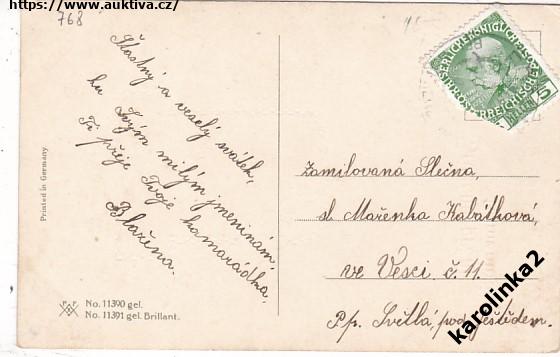 https://www.auktiva.cz/
768
Šťastný a veselý svátek,
ku Tvým milým jmeninám
Ti přeje Tvoje kamarádka,
Blažena.
KAISERLICHE KÖNIGLICHE
ÖSTERREICHISCHE
5
Printed in Germany
Zamilovaná Slečna,
sl. Mařenka Kabátková,
ve Vesci č. 11.
Pp. Světlá, pod Ještědem.
No. 11390 gel.
No. 11391 gel. Brillant.
karolinka2